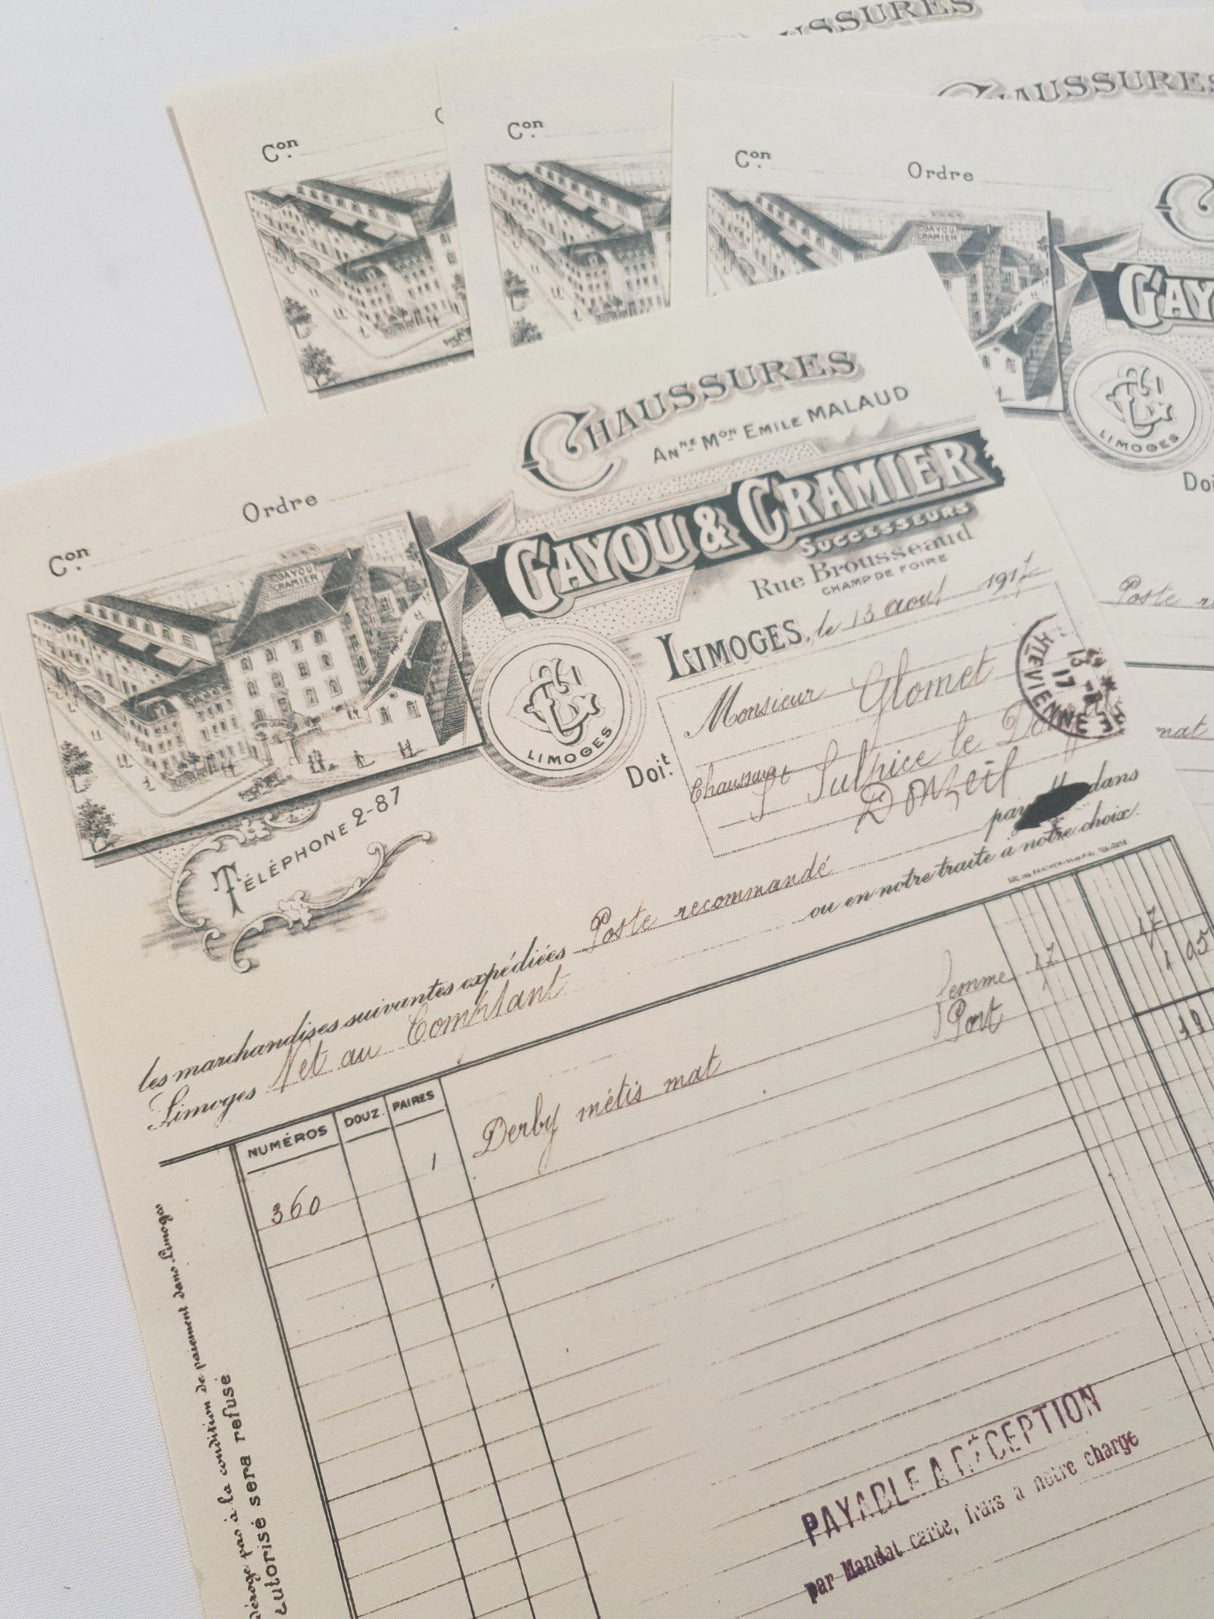 CHAUSSURES
CHAUSSURES
Con
Con
Con
Ordre
GAYOU
CRAMIER
GAY
LIMOGES
Doi
Poste
mat
CHAUSSURES
ANNE MON EMILE MALAUD
GAYOU & CRAMIER
SUCCESSEURS
Rue Brousseaud
CHAMP DE FOIRE
Con
Ordre
GAYOU
CRAMIER
LIMOGES
TÉLÉPHONE 2-87
LIMOGES, le 13 aout 1917
HTE VIENNE
13
17
Doit:
Monsieur Glomet
Chaussures
Sulpice le
Donzeil
les marchandises suivantes expédiées Poste recommandé
dans
Limoges Net au Comptant
ou en notre traite à notre choix.
NUMÉROS
DOUZ.
PAIRES
360 1 Derby métis mat femme 17 17
Port 1 05
PAYABLE A RÉCEPTION
par Mandat carte, frais a notre charge
déroge pas à la condition de paiement dans Limoges
autorisé sera refusé